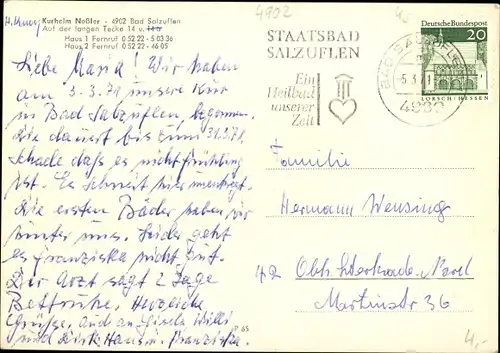 4902
H. Krug
Kurheim Neßler - 4902 Bad Salzuflen
Auf der langen Tecke 14 u. 14a
Haus 1 Fernruf 0 52 22 - 5 03 36
Haus 2 Fernruf 0 52 22 - 46 05
STAATSBAD
SALZUFLEN
Ein
Heilbad
unserer
Zeit
BAD SALZUFLEN
5.3.
4902
DEUTSCHE BUNDESPOST
20
LORSCH/HESSEN
Liebe Maria! Wir haben
am 3.3.71 unsere Kur
in Bad Salzuflen begonnen.
Die dauert bis zum 31.3.71,
Schade daß es nicht Frühling
ist. Es schneit hier
Die ersten Bäder haben wir
hinter uns. Leider geht
es Franziska nicht gut.
Der Arzt sagt 2 Tage
Bettruhe, Herzliche
Grüße, auch an Gisela Willi
und Hans u. Franziska.
65
Familie
Hermann Wensing
42
Martinstr 36
4,-